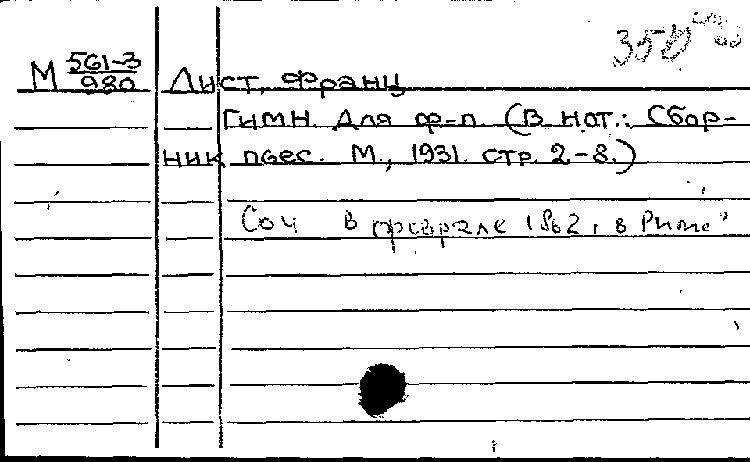 350
М 561-3/980 Лист, Франц
Гимн. Для ф-п. (В нот.: Сбор-
ник пьес. М., 1931. стр. 2-8.)
Соч в феврале 1862, в Риме